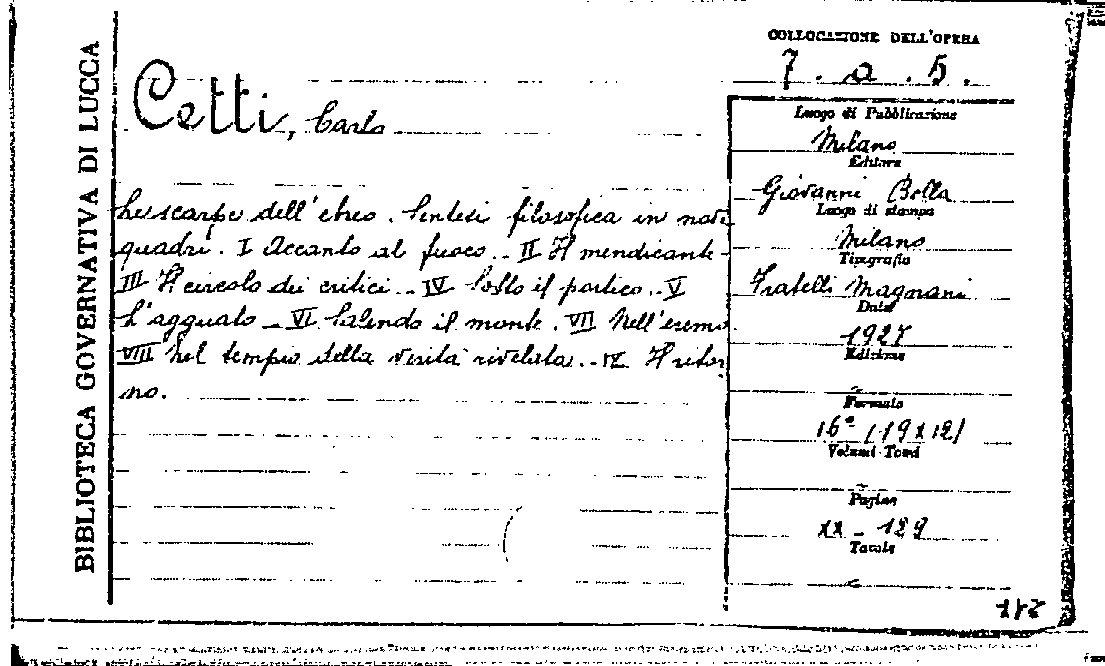 BIBLIOTECA GOVERNATIVA DI LUCCA
COLLOCAZIONE DELL'OPERA
7. a. 5.
Cetti, Carlo
Le scarpe dell'ebreo. Sintesi filosofica in nove
quadri. I Accanto al fuoco. - II Il mendicante -
III Il circolo dei critici. - IV Sotto il portico. - V
L'agguato - VI Salendo il monte. VII Nell'eremo
VIII Nel tempio della verità rivelata. - IX Il ritor
no.
Luogo di Pubblicazione
Milano
Editore
Giovanni Bolla
Luogo di stampa
Milano
Tipografia
Fratelli Magnani
Data
1927
Edizione
Formato
16° (19x12)
Volumi-Tomi
Pagine
XX - 129
Tavole